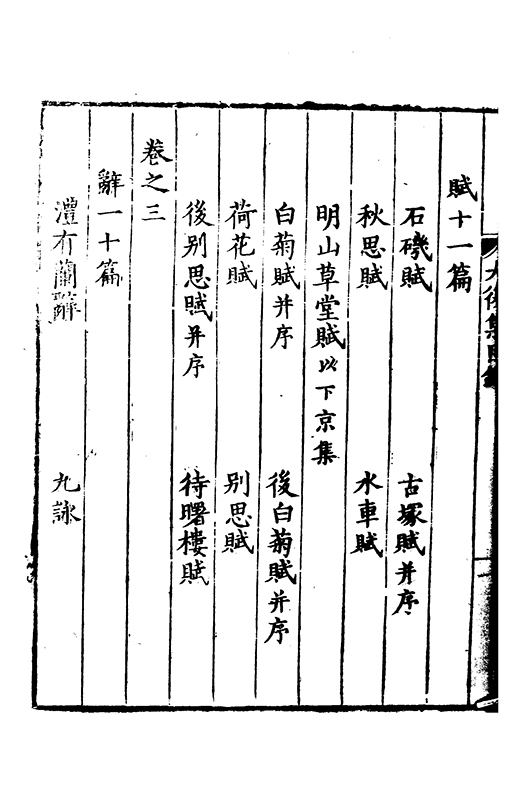 賦十一篇
石磯賦 古塚賦并序
秋思賦 水車賦
明山草堂賦以下京集
白菊賦并序 後白菊賦并序
荷花賦 别思賦
後别思賦并序 待曙樓賦
卷之三
辭一十篇
澧有蘭辭 九詠